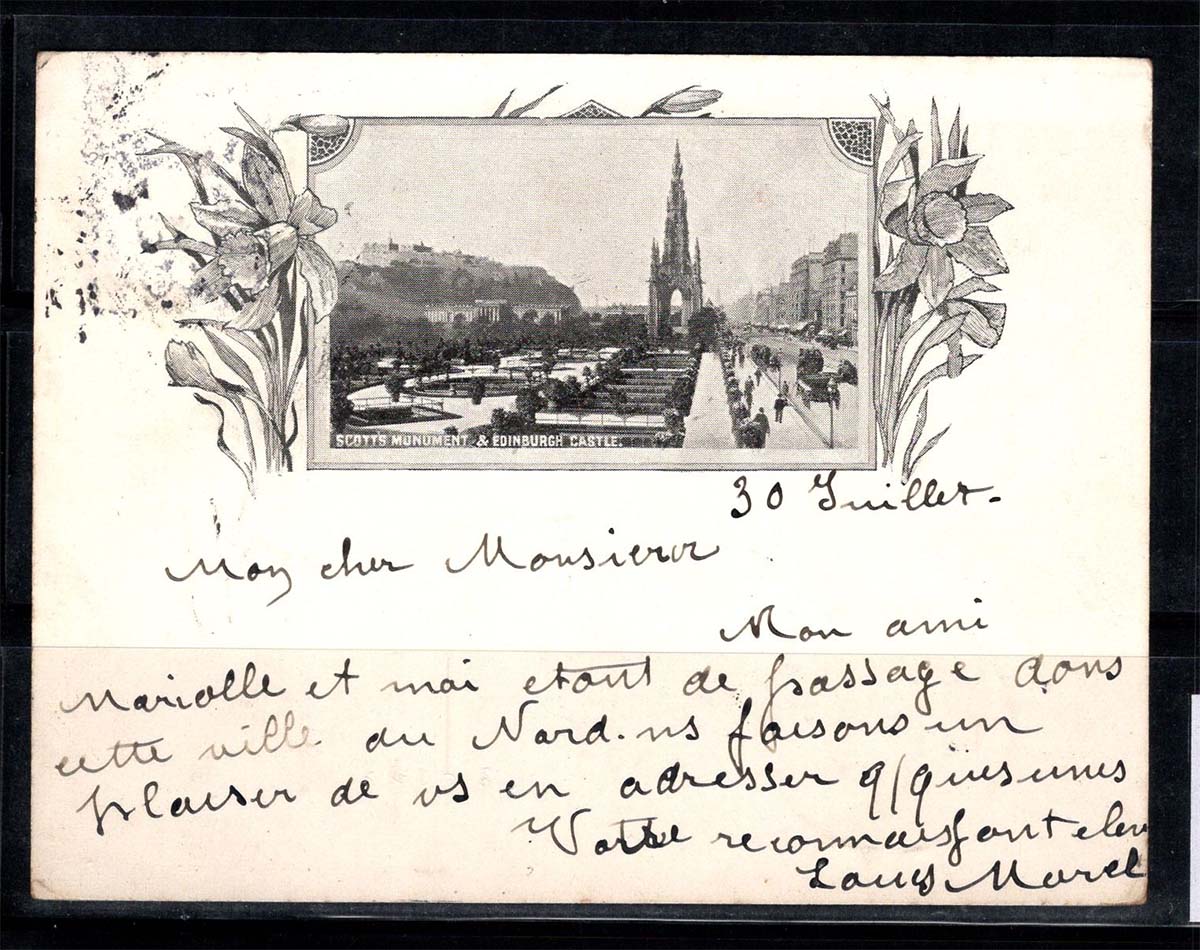 SCOTTS MONUMENT & EDINBURGH CASTLE.
30 Juillet.
Mon cher Monsieur
Mon ami
Mariolle et moi etant de passage dans
cette ville du Nord. ns faisons un
plaisir de vs en adresser q/ques unes
Votre reconnaissant elev
Louis Morel